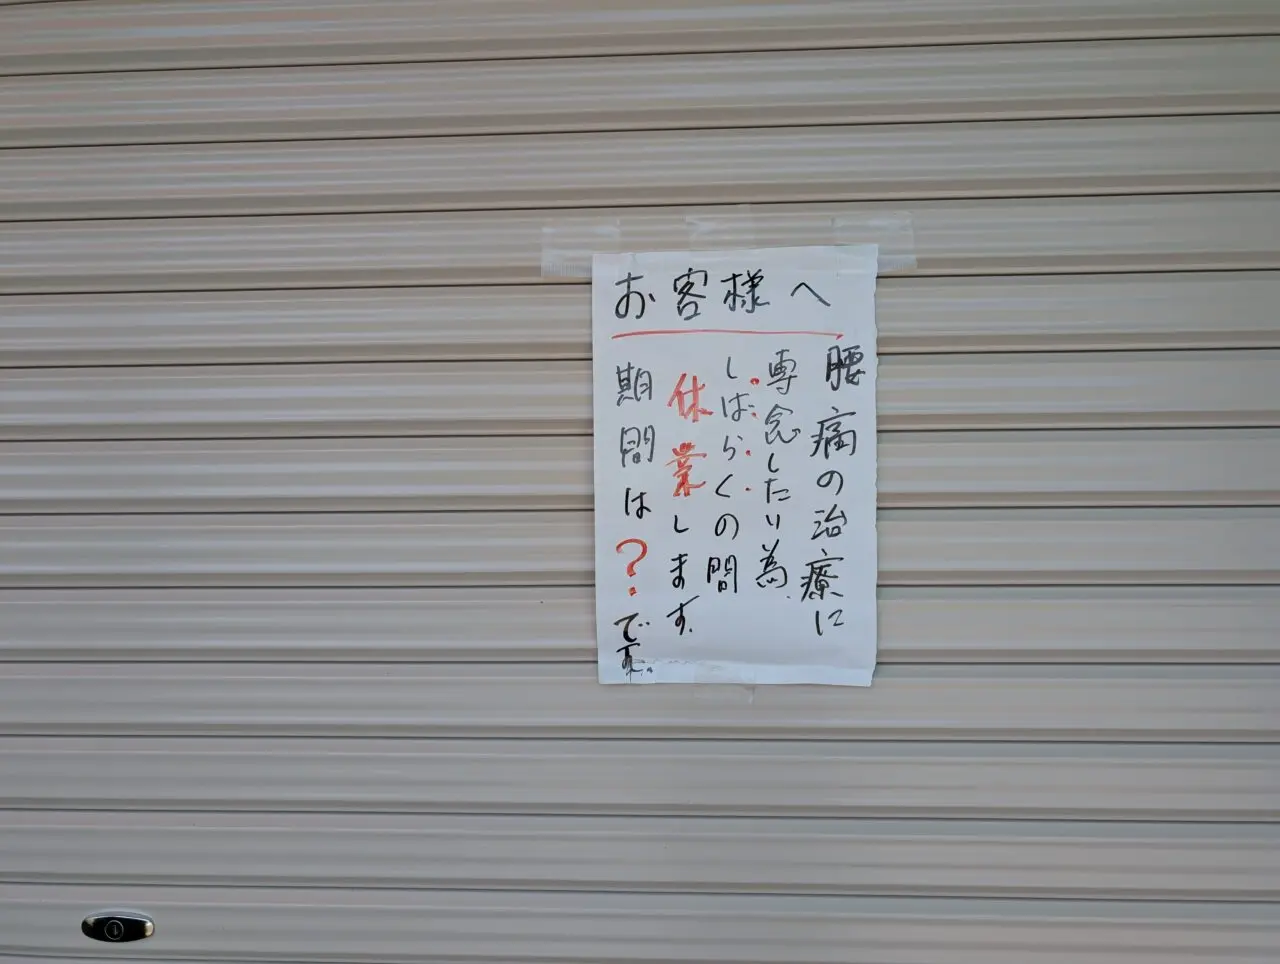 お客様へ
腰痛の治療に
専念したい為
しばらくの間
休業します。
期間は?です。